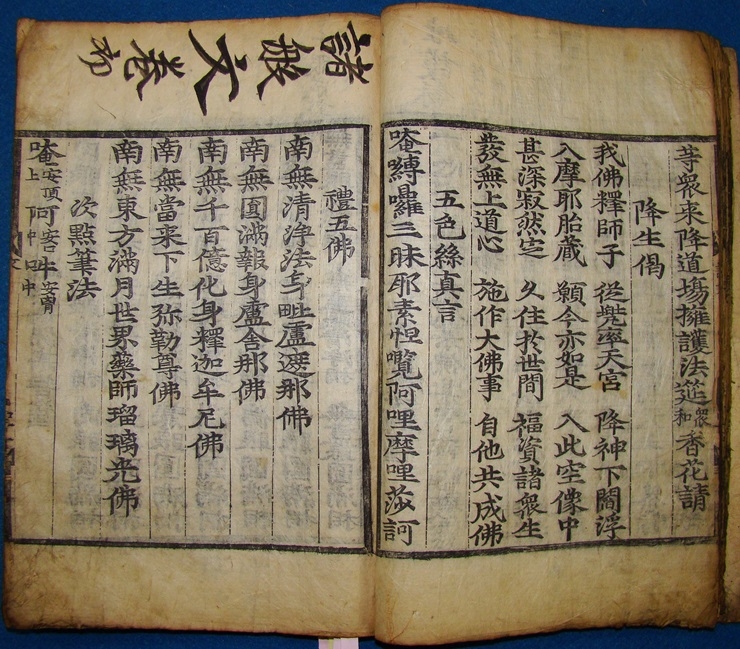 諸般文卷初
等衆來降道場擁護法筵衆和香花請
降生偈
我佛釋師子 從兠率天宮 降神下閻浮
入摩耶胎藏 願今亦如是 入此空像中
甚深寂然定 久住扵世間 福資諸衆生
發無上道心 施作大佛事 自他共成佛
五色絲真言
唵縛囉三昧耶素怛囕阿哩摩哩莎訶
禮五佛
南無清淨法身毗盧遮那佛
南無圓滿報身盧舍那佛
南無千百億化身釋迦牟尼佛
南無當來下生弥勒尊佛
南無東方滿月世界藥師瑠璃光佛
次點筆法
唵安頂上阿安口中吽安胷中